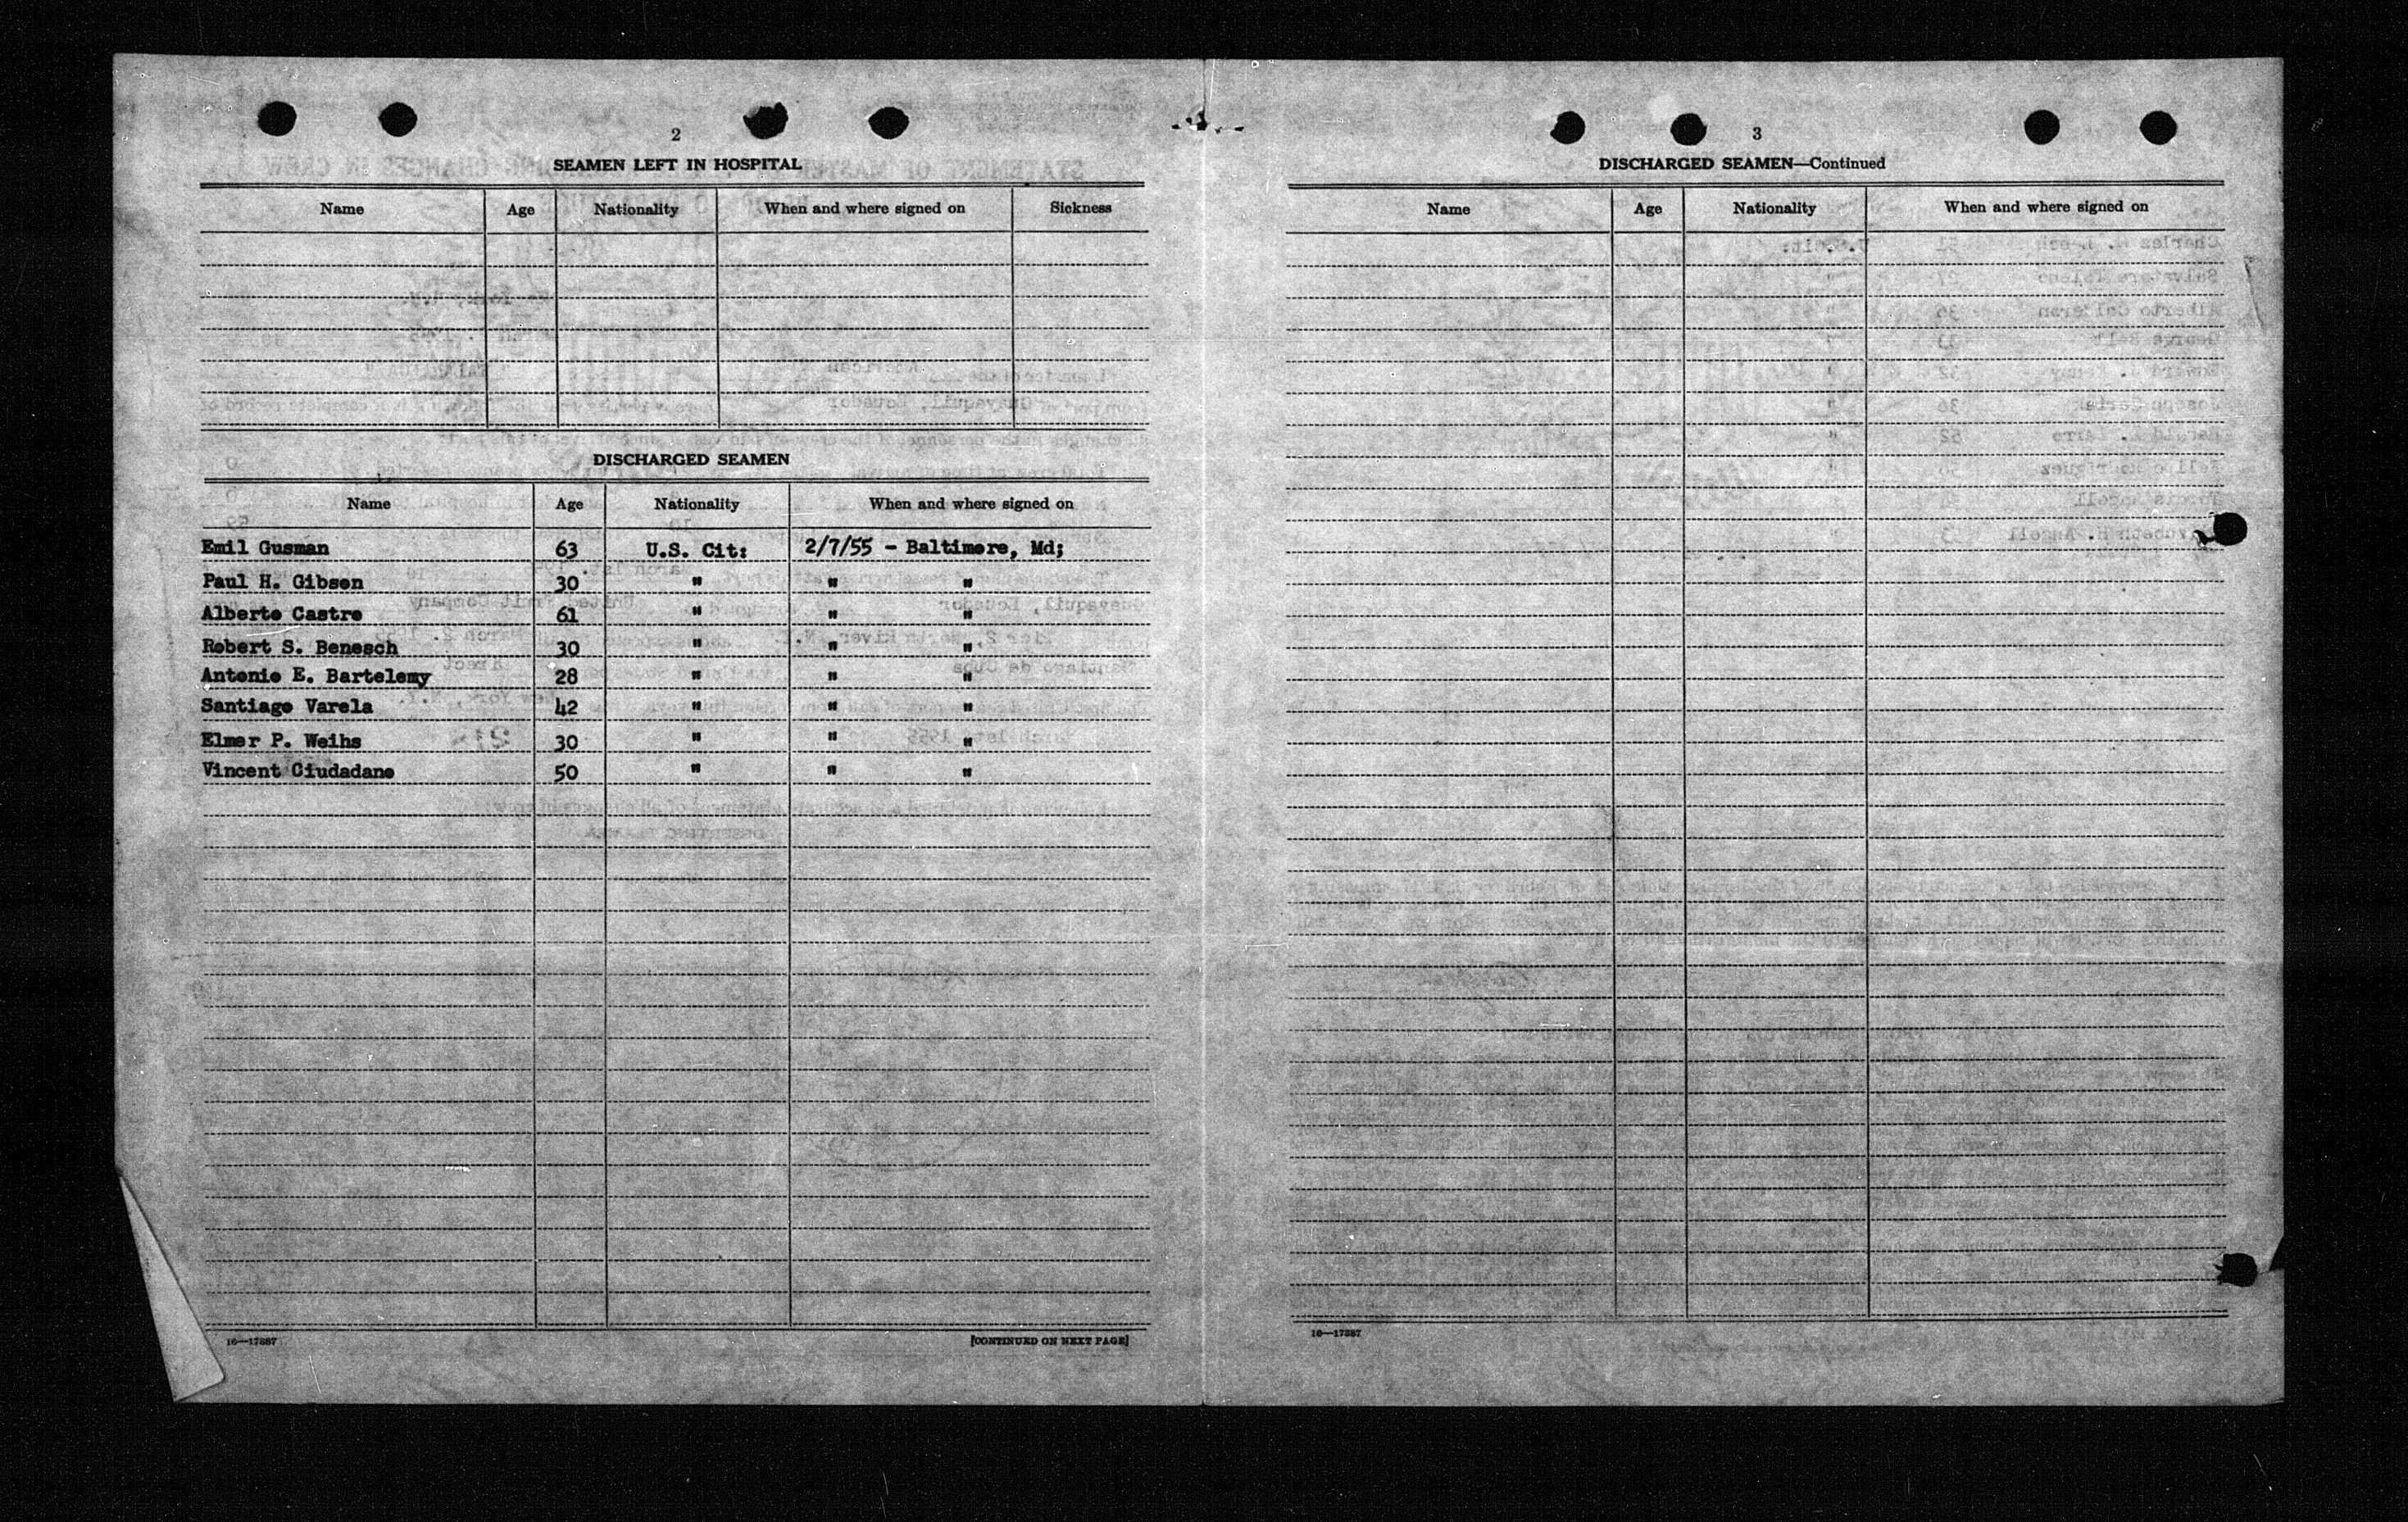 2
SEAMEN LEFT IN HOSPITAL
Name Age Nationality When and where signed on Sickness
DISCHARGED SEAMEN
Name Age Nationality When and where signed on
Emil Gusman 63 U.S. Cit: 2/7/55 - Baltimore, Md;
Paul H. Gibson 30 " " "
Alberto Castro 61 " " "
Robert S. Benesch 30 " " "
Antonio E. Bartelemy 28 " " "
Santiago Varela 42 " " "
Elmer P. Weihs 30 " " "
Vincent Ciudadano 50 " " "
16—17887
[CONTINUED ON NEXT PAGE]
3
DISCHARGED SEAMEN—Continued
Name Age Nationality When and where signed on
16—17887